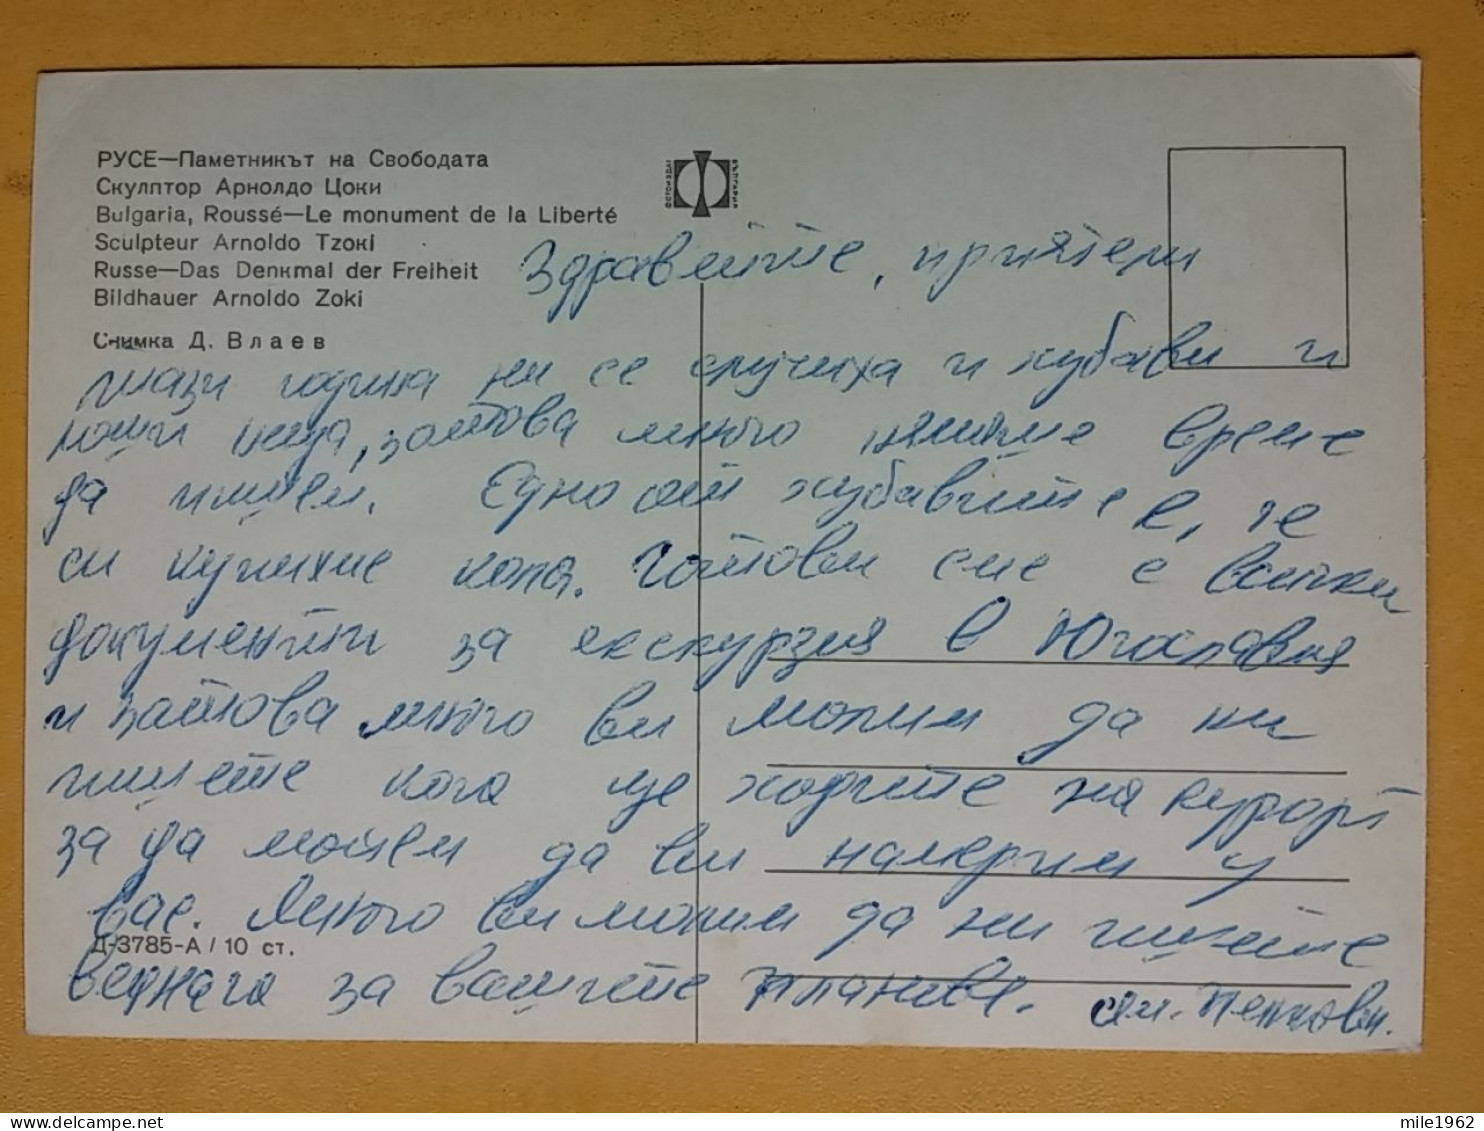 РУСЕ—Паметникът на Свободата
Скулптор Арнолдо Цоки
Bulgaria, Roussé—Le monument de la Liberté
Sculpteur Arnoldo Tzoкi
Russe—Das Denкmal der Freiheit
Bildhauer Arnoldo Zoki
Снимка Д. Влаев
ФОТОИЗДАТ
БЪЛГАРИЯ
Здравейте, приятели
тази година ни се случиха и хубави и
лоши неща, затова много нямахме време
да пишем. Едно от хубавите е, че
си купихме кола. Готови сме с всички
документи за екскурзия в Югославия
и затова много ви молим да ни
пишете кога ще ходите на курорт
за да можем да ви намерим у
вас. Много ви молим да ни пишете
веднага за вашите планове. сем. Пенкови.
Д-3785-А / 10 ст.
mile1962